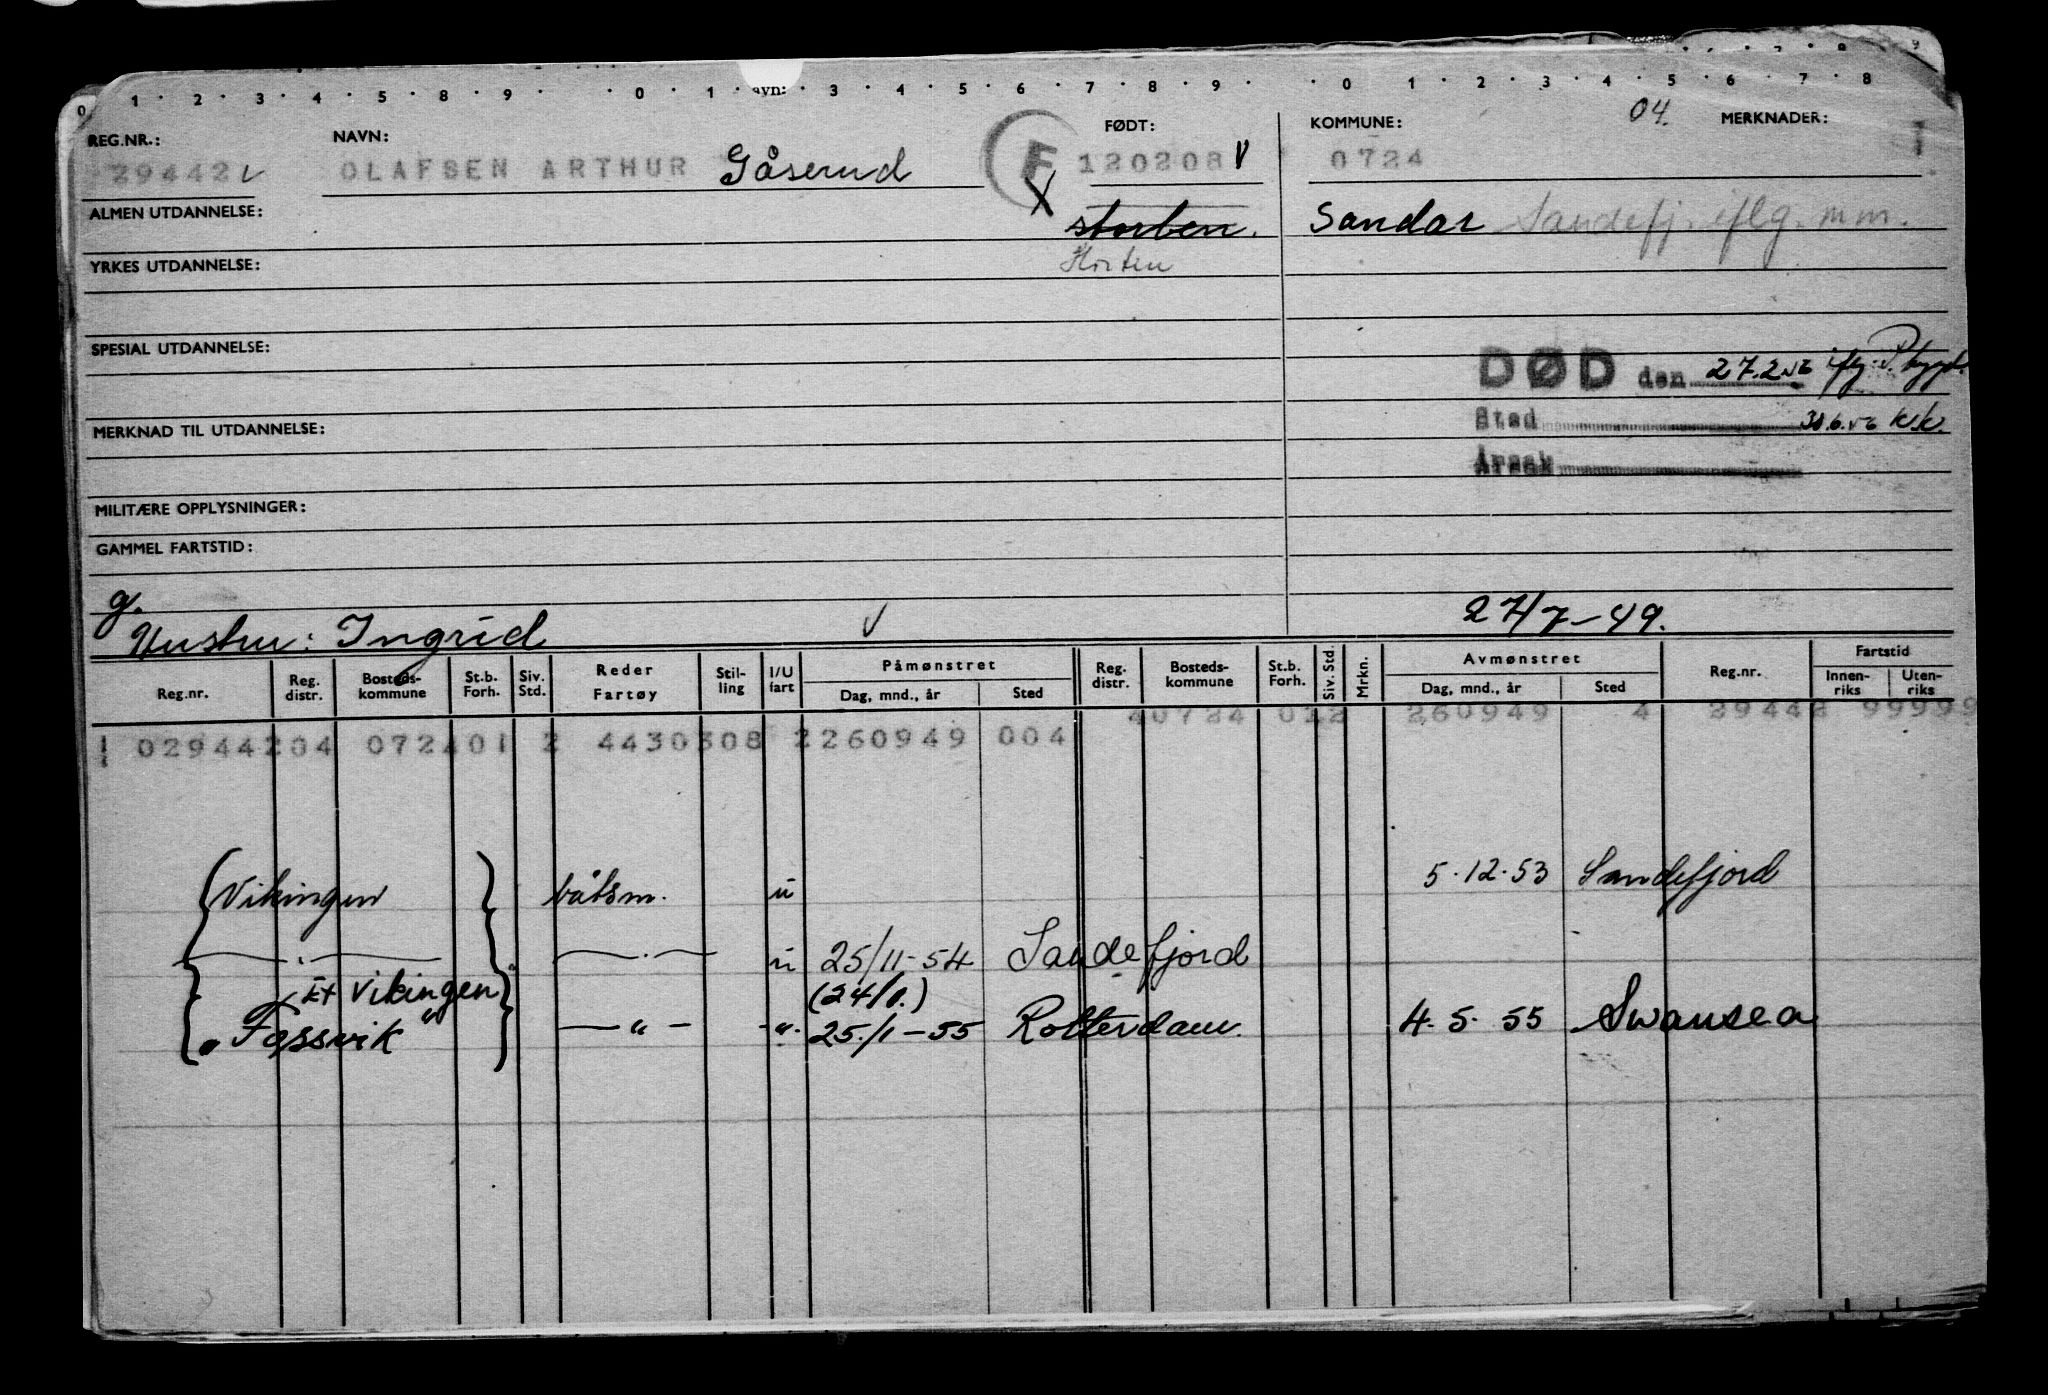 0 · 1 · 2 · 3 · 4 · 5 · 8 · 9 · · 0 · 1 avn: · 3 · 4 · 5 · 6 · 7 · 8 · 9 · · 0 1 · 2 · 3 · 4 · 5 6 · 7 · 8
REG.NR.: NAVN: FØDT: KOMMUNE: 04. MERKNADER:
29442 v OLAFSEN ARTHUR Gåserud F 120208 V 0724
X
ALMEN UTDANNELSE: Sandar Sandefj. iflg. mm.
YRKES UTDANNELSE: Horten
SPESIAL UTDANNELSE:
DØD den 27.2.56 iflg. P. trygd.
MERKNAD TIL UTDANNELSE: Sted 30.6.56 K.K.
Årsak
MILITÆRE OPPLYSNINGER:
GAMMEL FARTSTID:
g.
Hustru: Ingrid V 27/7-49.
Reg.nr. Reg. distr. Bosteds-kommune St.b. Forh. Siv. Std. Reder Fartøy Stil-ling I/U fart Påmønstret Dag, mnd., år Sted Reg. distr. Bosteds-kommune St.b. Forh. Siv. Std. Mrkn. Avmønstret Dag, mnd., år Sted Reg.nr. Fartstid Innen-riks Uten-riks
40724 012 260949 4 29442 99999
02944204 072401 2 4430308 2260949 004
Vikingen båtsm. u 5.12.53 Sandefjord
— . — — . — u 25/11-54 Sandefjord
(ex Vikingen (24/1.)
"Fossvik" — " — - " - 25./1-55 Rotterdam. 4.5.55 Swansea